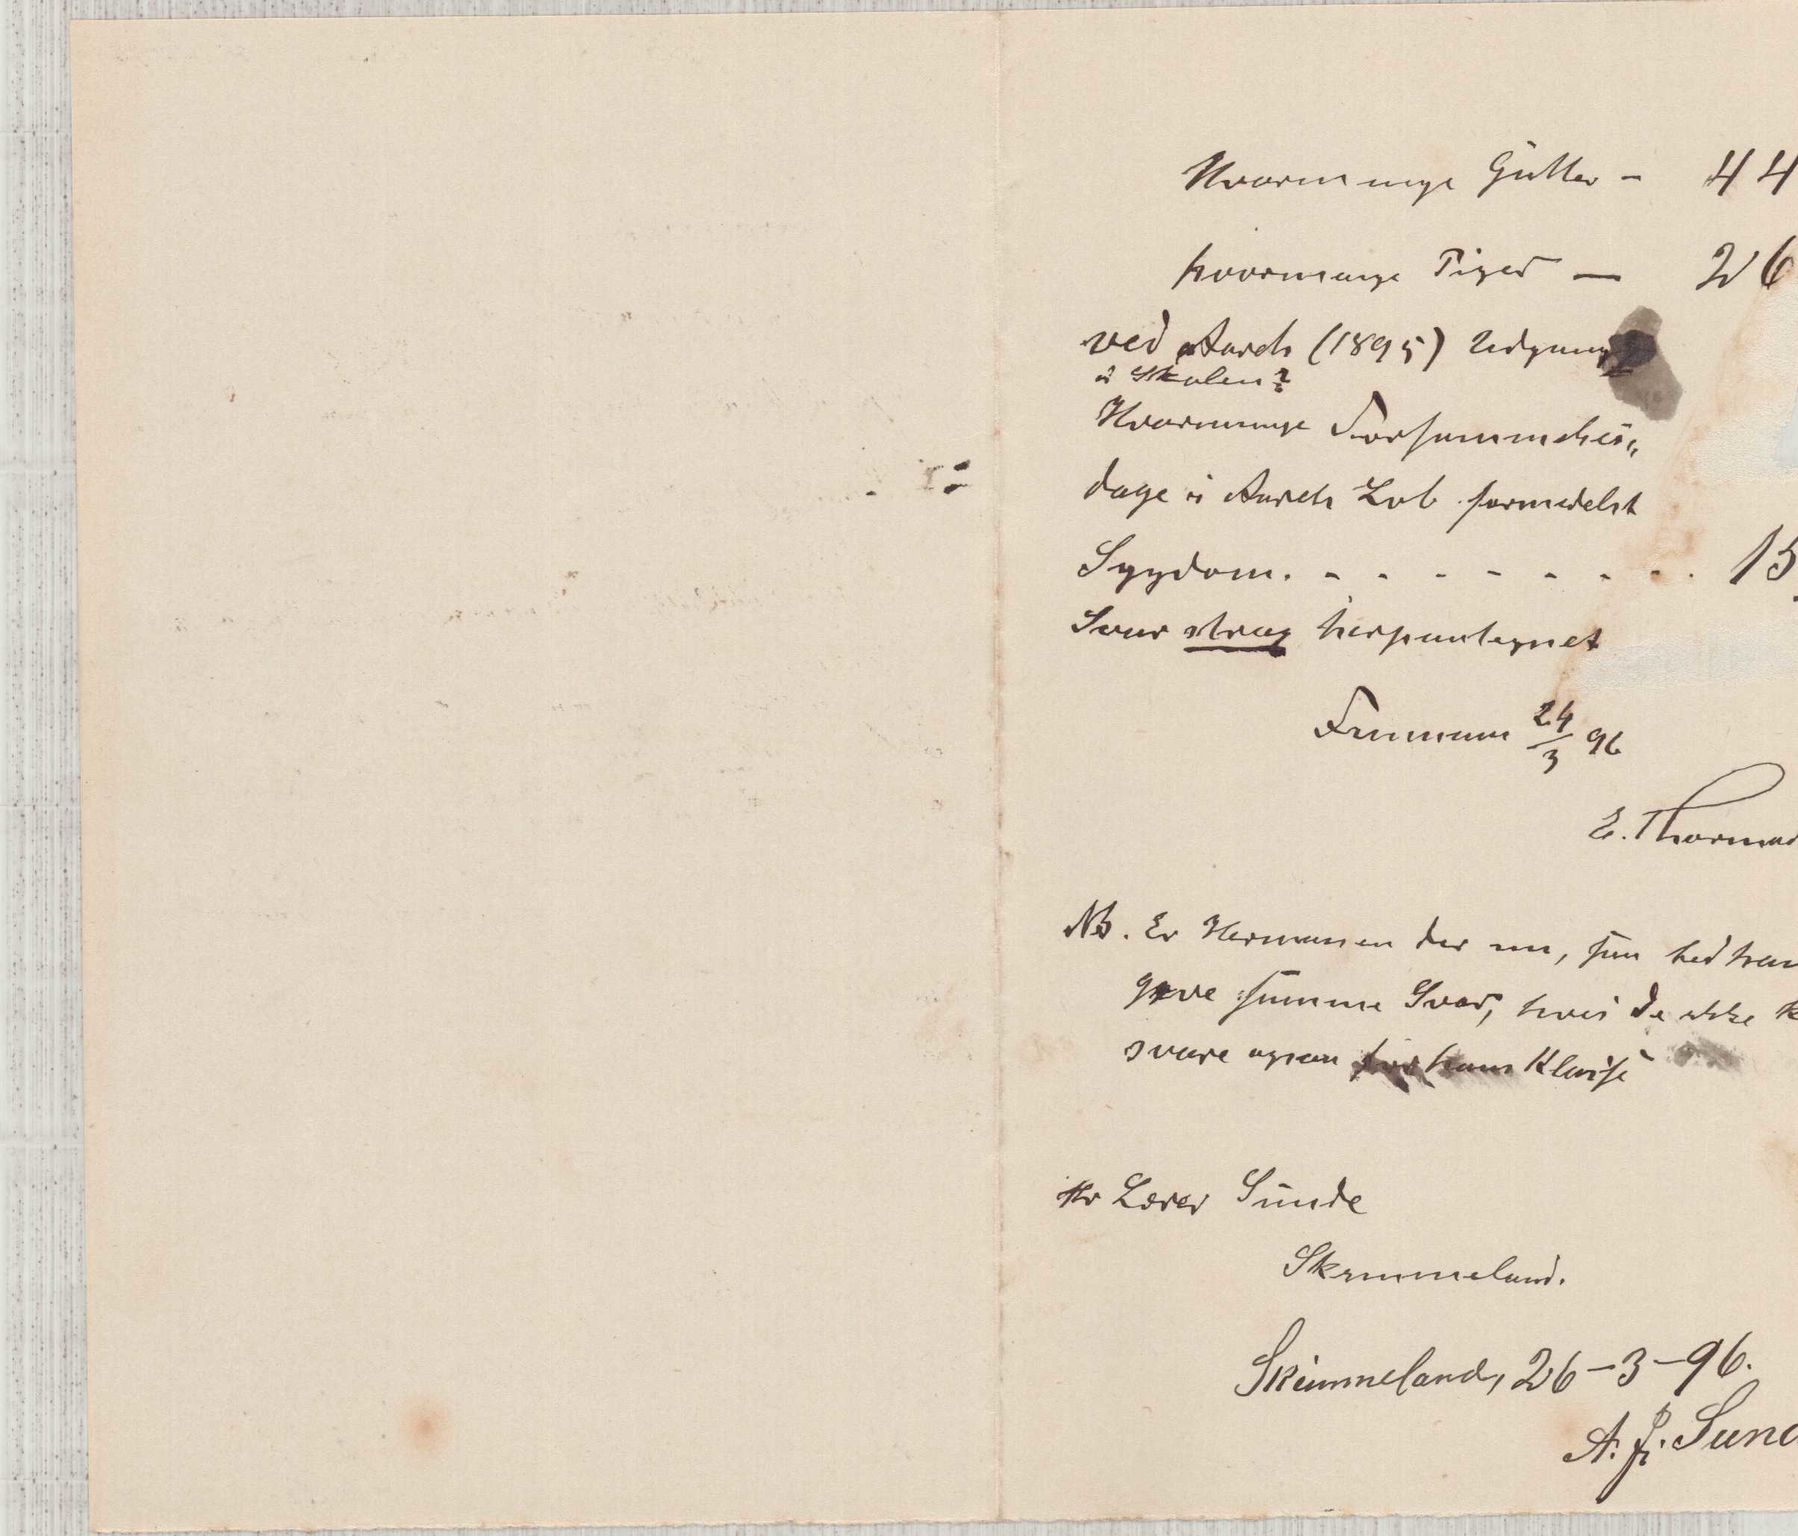 Hvormange Gutter - 44
hvormange Piger — 26
ved Aarets (1895) Udgang
i Skolen?
Hvormange Forsømmelses„
dage i Aarets Løb formedelst
Sygdom. - - - - - - - . 15
Svar strax herpaategnet
24/3 96
E. Thormod
NB. Er Hermansen der nu, saa bed ham
give samme Svar, hvis De ikke k
svare ogsaa for hans Kreds
Hr Lærer Sunde
Skrimmeland.
Skimmeland, 26-3-96.
A. J. Sund